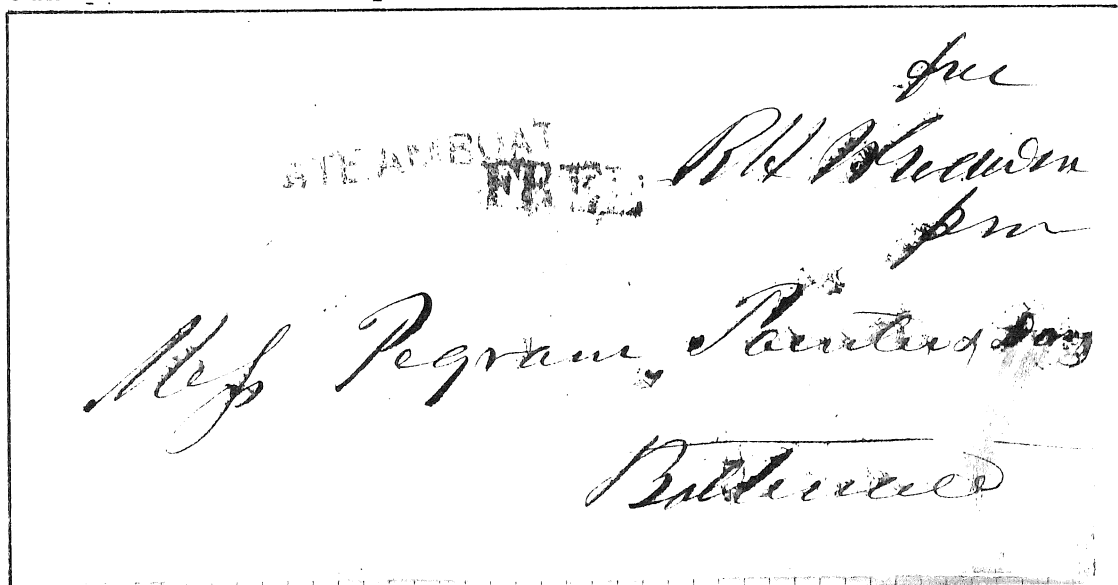 free
STEAMBOAT
FREE
R H
pm
Mess Pegram, Paynter & Davis
Baltimore